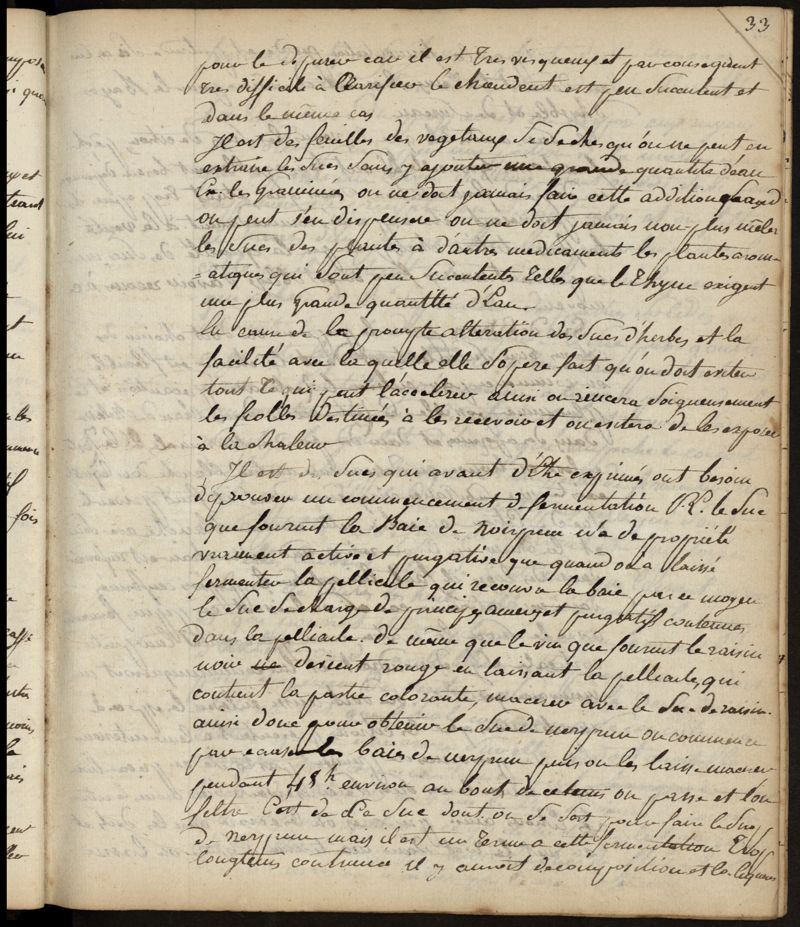 33
pour le dépurer car il est tres visqueux et par consequent
tres difficile à Clarifier le chiendent est peu Succulent et
dans le même cas
Il est des feuilles des vegetaux Si Seches qu'on ne peut en
extraire les Sucs Sans y ajouter une grande quantité d'eau
les Graminées on ne doit jamais faire cette addition quand
on peut s'en dispenser on ne doit jamais non plus mêler
les Sucs des plantes à d'autres medicaments les plantes arom-
=atiques qui Sont peu Succulents telles que le Thym exigent
une plus Grande quantité d'Eau
la cause de la prompte alteration des Sucs d'herbes et la
facilité avec la quelle elle S'opere fait qu'on doit eviter
tout ce qui peut l'accelerer ainsi on rincera Soigneusement
les fiolles destinées à les recevoir et on evitera de les exposer
à la chaleur
Il est des Sucs qui avant d'Etre exprimés ont besoin
d'eprouver un commencement de fermentation P.E. le Suc
que fournit la Baie de noirprun n'a de proprieté
vraiment active et purgative que quand on a laissé
fermenter la pellicule qui recouvre la baie par ce moyen
le Suc Se charge de principes amers et purgatifs contenus
dans la pellicule. de même que le vin que fournit le raisin
noir ne devient rouge en laissant la pellicule, qui
contient la partie colorante, macerer avec le Suc de raisin.
ainsi donc pour obtenir le Suc de nerprun on commence
par ecraser les baies de nerprun puis on les laisse macerer
pendant 48h. environ au bout de ce tems on passe et l'on
filtre C'est de ce Suc dont on Se Sert pour faire le Sirop
de nerprun mais il est un terme a cette fermentation Trop
longtems continuée il y auroit decomposition et la liqueur